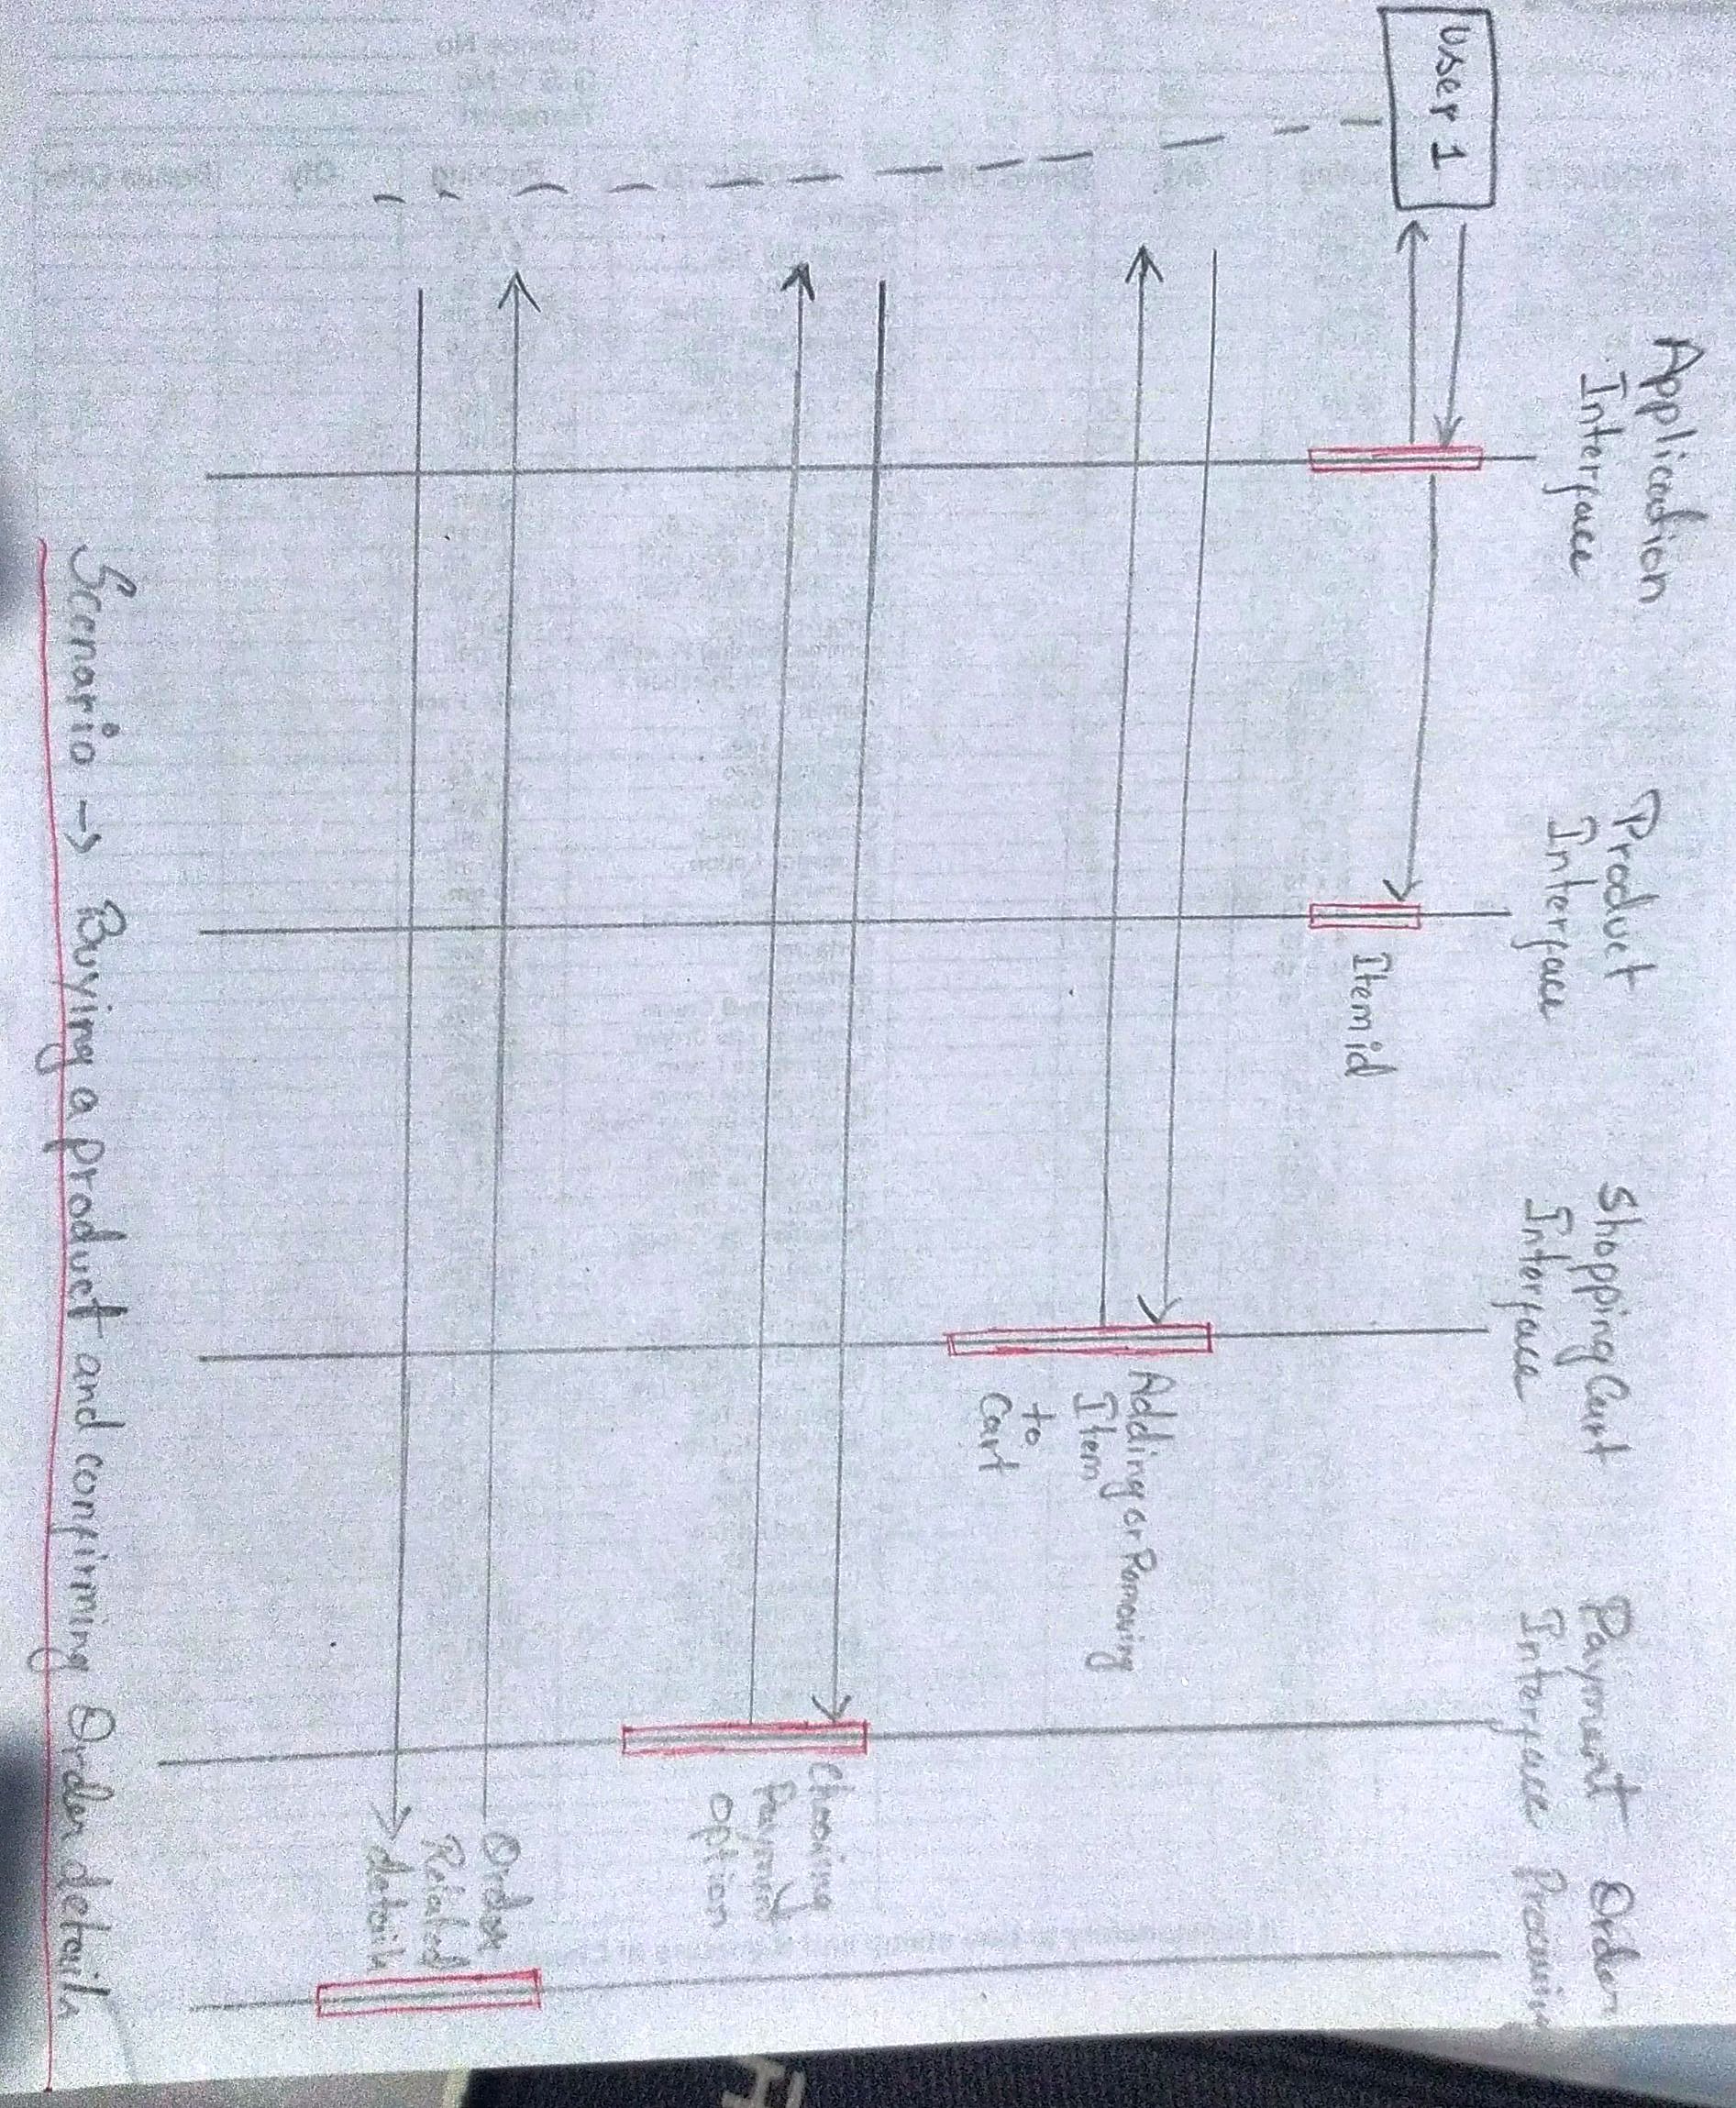 User 1
Application
Interface
Product
Interface
Shopping Cart
Interface
Payment
Interface
Order
Item id
Adding or Removing
Item
to
Cart
Choosing
Payment
option
Order
Related
details
Scenario → Buying a product and confirming Order details